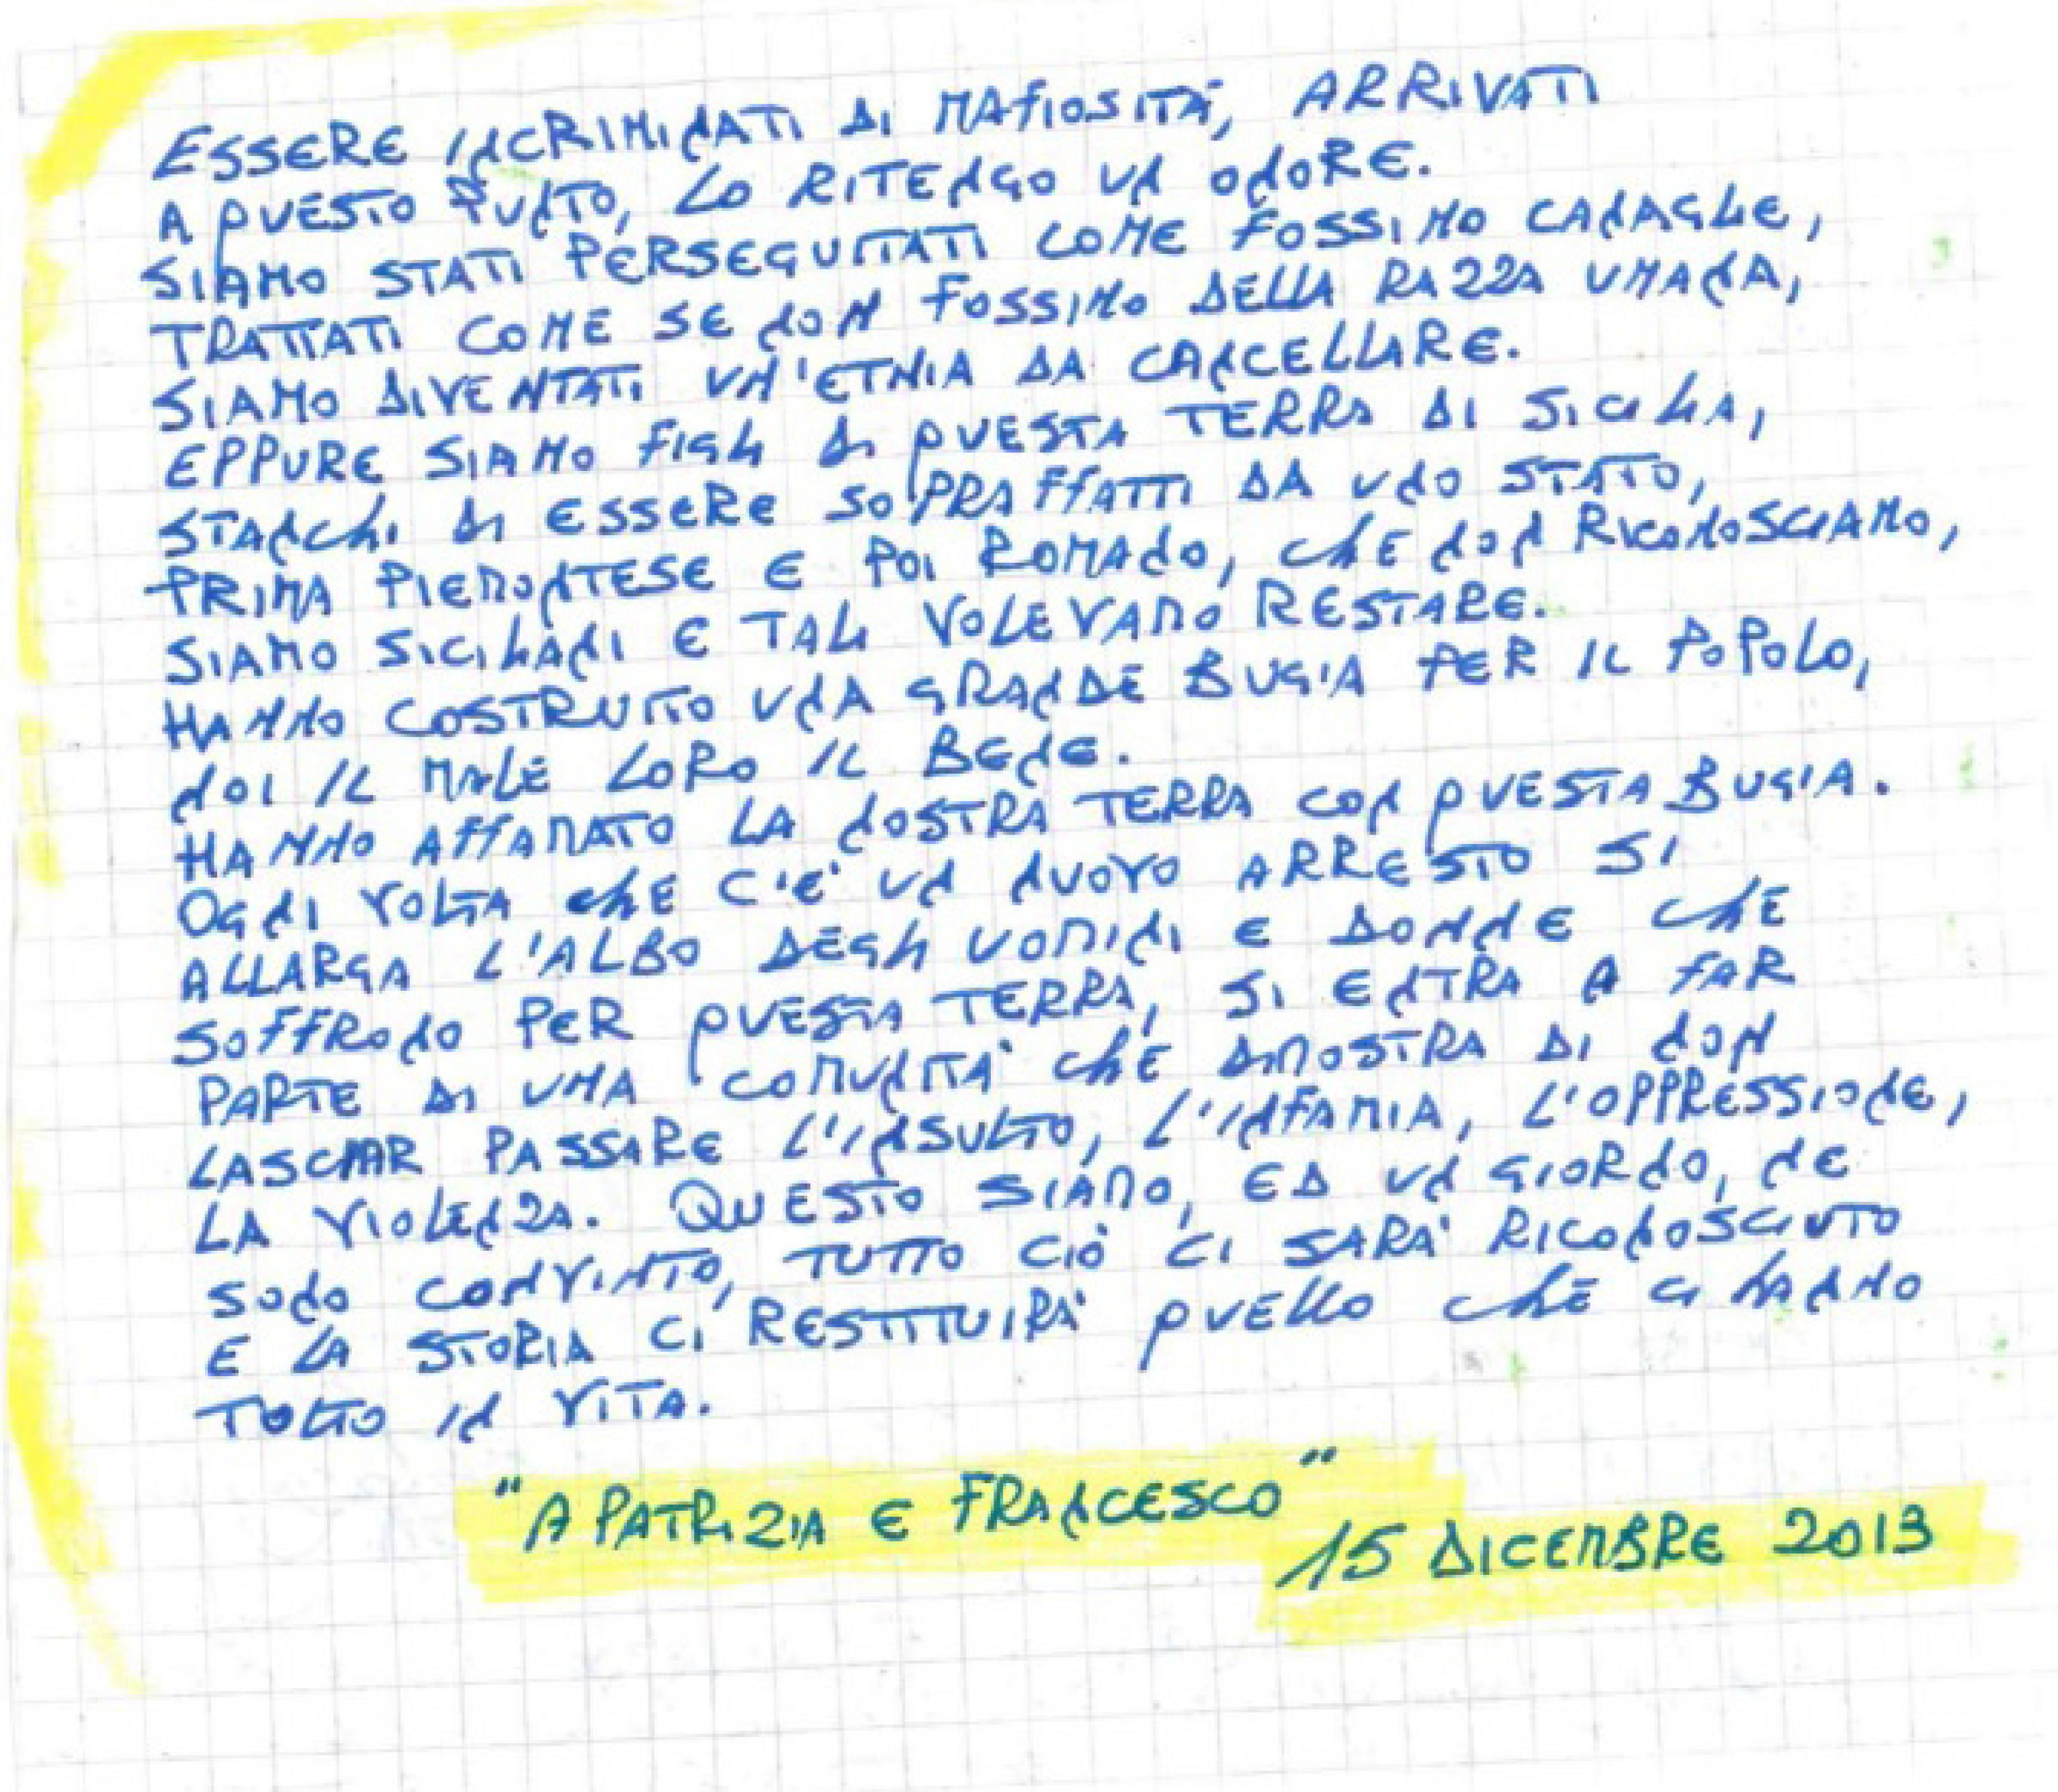 ESSERE INCRIMINATI DI MAFIOSITÀ, ARRIVATI
A QUESTO PUNTO, LO RITENGO UN ONORE.
SIAMO STATI PERSEGUITATI COME FOSSIMO CANAGLE,
TRATTATI COME SE NON FOSSIMO DELLA RAZZA UMANA,
SIAMO DIVENTATI UN'ETNIA DA CANCELLARE.
EPPURE SIAMO FIGLI DI QUESTA TERRA DI SICILIA,
STANCHI DI ESSERE SOPRAFFATTI DA UNO STATO,
PRIMA PIEMONTESE E POI ROMANO, CHE NON RICONOSCIAMO,
SIAMO SICILIANI E TALI VOLEVAMO RESTARE.
HANNO COSTRUITO UNA GRANDE BUGIA PER IL POPOLO,
NOI IL MALE LORO IL BENE.
HANNO AFFAMATO LA NOSTRA TERRA CON QUESTA BUGIA.
OGNI VOLTA CHE C'E' UN NUOVO ARRESTO SI
ALLARGA L'ALBO DEGLI UOMINI E DONNE CHE
SOFFRONO PER QUESTA TERRA, SI ENTRA A FAR
PARTE DI UNA COMUNITA' CHE DIMOSTRA DI NON
LASCIAR PASSARE L'INSULTO, L'INFAMIA, L'OPPRESSIONE,
LA VIOLENZA. QUESTO SIAMO, ED UN GIORNO, NE
SONO CONVINTO, TUTTO CIÒ CI SARA' RICONOSCIUTO
E LA STORIA CI RESTITUIRA' QUELLO CHE CI HANNO
TOLTO IN VITA.
"A PATRIZIA E FRANCESCO"
15 DICEMBRE 2013